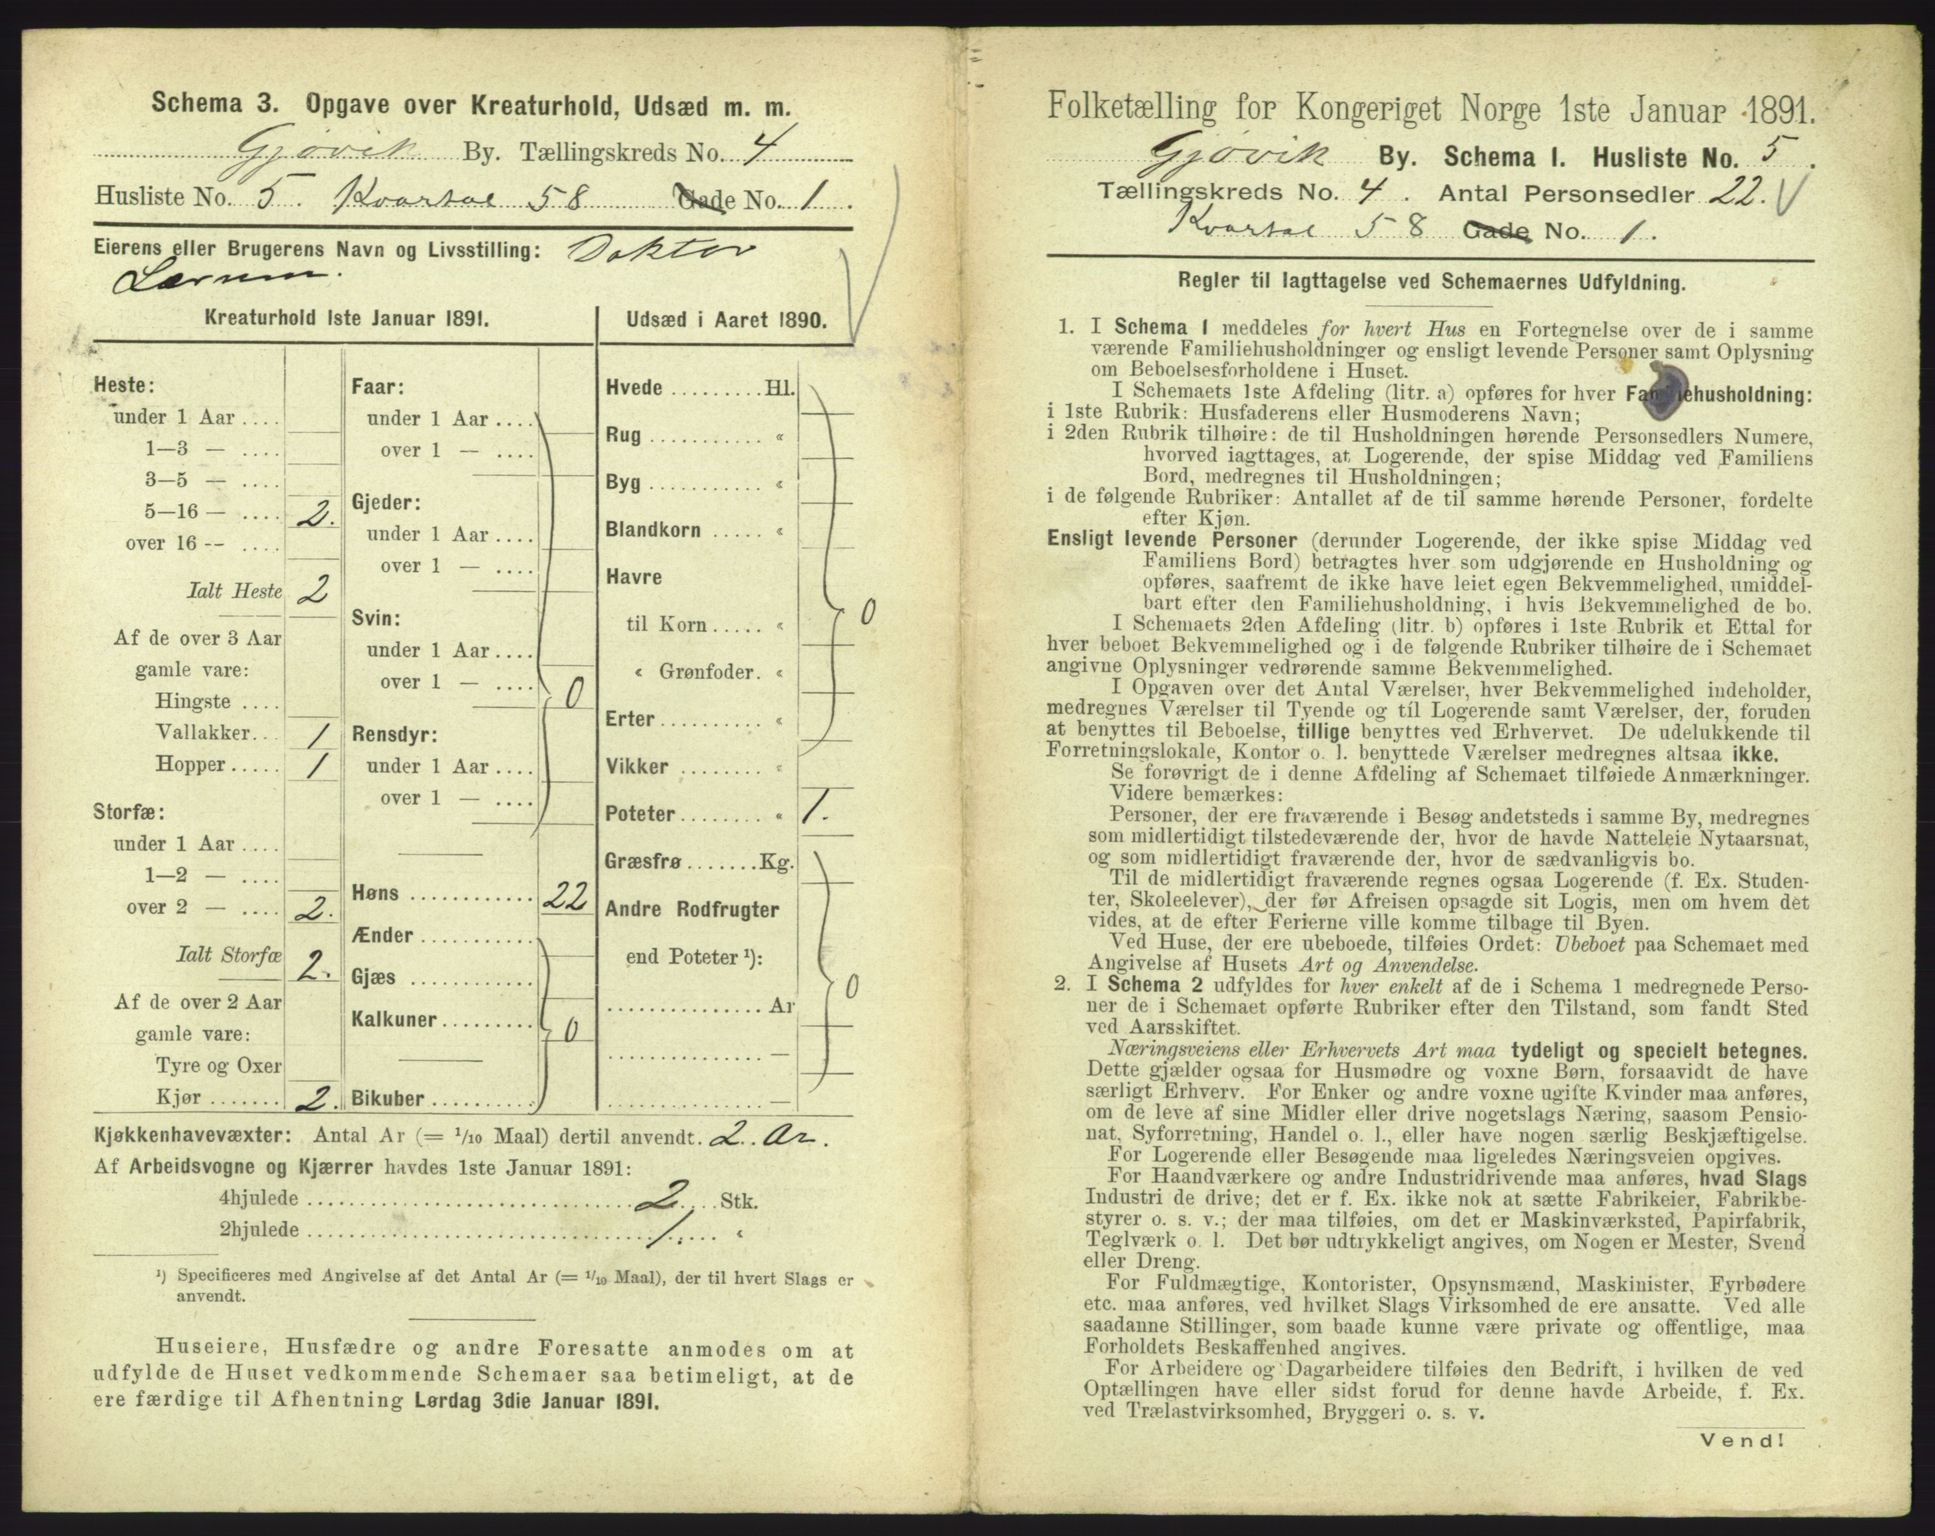 Schema 3. Opgave over Kreaturhold, Udsæd m. m.
Gjøvik By. Tællingskreds No. 4
Husliste No. 5. Kvartal 58 Gade No. 1.
Eierens eller Brugerens Navn og Livsstilling: Doktor
Lærum.
Kreaturhold 1ste Januar 1891.
Heste:
under 1 Aar ....
1—3 — ....
3—5 — ....
5—16 — .... 2.
over 16 -- ....
Ialt Heste 2
Af de over 3 Aar
gamle vare:
Hingste ....
Vallakker.. 1
Hopper ..... 1
Storfæ:
under 1 Aar ....
1—2 — ....
over 2 — .... 2.
Ialt Storfæ 2.
Af de over 2 Aar
gamle vare:
Tyre og Oxer
Kjør ....... 2.
Faar:
under 1 Aar ....
over 1 — ....
Gjeder:
under 1 Aar ....
over 1 — ....
Svin:
under 1 Aar ....
over 1 — .... 0
Rensdyr:
under 1 Aar ....
over 1 — ....
Høns ............ 22
Ænder ...........
Gjæs ............
Kalkuner ......... 0
Bikuber ..........
Udsæd i Aaret 1890.
Hvede ......... Hl.
Rug ........... «
Byg ........... «
Blandkorn ..... «
Havre 0
til Korn ..... «
« Grønfoder. «
Erter .......... «
Vikker ........ «
Poteter ........ « 1.
Græsfrø ....... Kg.
Andre Rodfrugter
end Poteter ¹): 0
............... Ar
............... —
............... —
Kjøkkenhavevæxter: Antal Ar (= 1/10 Maal) dertil anvendt. 2 Ar.
Af Arbeidsvogne og Kjærrer havdes 1ste Januar 1891:
4hjulede .............................. 2 .... Stk.
2hjulede .............................. 1. .... «
¹) Specificeres med Angivelse af det Antal Ar (= 1/10 Maal), der til hvert Slags er
anvendt.
Huseiere, Husfædre og andre Foresatte anmodes om at
udfylde de Huset vedkommende Schemaer saa betimeligt, at de
ere færdige til Afhentning Lørdag 3die Januar 1891.
Folketælling for Kongeriget Norge 1ste Januar 1891.
Gjøvik By. Schema 1. Husliste No. 5.
Tællingskreds No. 4. Antal Personsedler 22.
Kvartal 58 Gade No. 1.
Regler til Iagttagelse ved Schemaernes Udfyldning.
1. I Schema 1 meddeles for hvert Hus en Fortegnelse over de i samme
værende Familiehusholdninger og ensligt levende Personer samt Oplysning
om Beboelsesforholdene i Huset.
I Schemaets 1ste Afdeling (litr. a) opføres for hver Familiehusholdning:
i 1ste Rubrik: Husfaderens eller Husmoderens Navn;
i 2den Rubrik tilhøire: de til Husholdningen hørende Personsedlers Numere,
hvorved iagttages, at Logerende, der spise Middag ved Familiens
Bord, medregnes til Husholdningen;
i de følgende Rubriker: Antallet af de til samme hørende Personer, fordelte
efter Kjøn.
Ensligt levende Personer (derunder Logerende, der ikke spise Middag ved
Familiens Bord) betragtes hver som udgjørende en Husholdning og
opføres, saafremt de ikke have leiet egen Bekvemmelighed, umiddel-
bart efter den Familiehusholdning, i hvis Bekvemmelighed de bo.
I Schemaets 2den Afdeling (litr. b) opføres i 1ste Rubrik et Ettal for
hver beboet Bekvemmelighed og i de følgende Rubriker tilhøire de i Schemaet
angivne Oplysninger vedrørende samme Bekvemmelighed.
I Opgaven over det Antal Værelser, hver Bekvemmelighed indeholder,
medregnes Værelser til Tyende og til Logerende samt Værelser, der, foruden
at benyttes til Beboelse, tillige benyttes ved Erhvervet. De udelukkende til
Forretningslokale, Kontor o. l. benyttede Værelser medregnes altsaa ikke.
Se forøvrigt de i denne Afdeling af Schemaet tilføiede Anmærkninger.
Videre bemærkes:
Personer, der ere fraværende i Besøg andetsteds i samme By, medregnes
som midlertidigt tilstedeværende der, hvor de havde Natteleie Nytaarsnat,
og som midlertidigt fraværende der, hvor de sædvanligvis bo.
Til de midlertidigt fraværende regnes ogsaa Logerende (f. Ex. Studen-
ter, Skoleelever), der før Afreisen opsagde sit Logis, men om hvem det
vides, at de efter Ferierne ville komme tilbage til Byen.
Ved Huse, der ere ubeboede, tilføies Ordet: Ubeboet paa Schemaet med
Angivelse af Husets Art og Anvendelse.
2. I Schema 2 udfyldes for hver enkelt af de i Schema 1 medregnede Perso-
ner de i Schemaet opførte Rubriker efter den Tilstand, som fandt Sted
ved Aarsskiftet.
Næringsveiens eller Erhvervets Art maa tydeligt og specielt betegnes.
Dette gjælder ogsaa for Husmødre og voxne Børn, forsaavidt de have
særligt Erhverv. For Enker og andre voxne ugifte Kvinder maa anføres,
om de leve af sine Midler eller drive nogetslags Næring, saasom Pensio-
nat, Syforretning, Handel o. l., eller have nogen særlig Beskjæftigelse.
For Logerende eller Besøgende maa ligeledes Næringsveien opgives.
For Haandværkere og andre Industridrivende maa anføres, hvad Slags
Industri de drive; det er f. Ex. ikke nok at sætte Fabrikeier, Fabrikbe-
styrer o. s. v.; der maa tilføies, om det er Maskinværksted, Papirfabrik,
Teglværk o. l. Det bør udtrykkeligt angives, om Nogen er Mester, Svend
eller Dreng.
For Fuldmægtige, Kontorister, Opsynsmænd, Maskinister, Fyrbødere
etc. maa anføres, ved hvilket Slags Virksomhed de ere ansatte. Ved alle
saadanne Stillinger, som baade kunne være private og offentlige, maa
Forholdets Beskaffenhed angives.
For Arbeidere og Dagarbeidere tilføies den Bedrift, i hvilken de ved
Optællingen have eller sidst forud for denne havde Arbeide, f. Ex.
ved Trælastvirksomhed, Bryggeri o. s. v.
Vend!